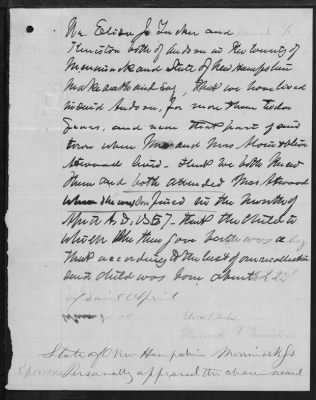 We, Eliza J. Tucker and
Keniston both of Andover in the County of
Merrimack and State of New Hampshire
make oath and say, that we have lived
in said Andover, for more than
years, and near that part of said
town where Mr and Mrs
Atwood lived - that we both knew
them and both attended Mrs Atwood
when she was confined in the month of
April A.D. 1857 - that the child to
which she then gave birth was a boy
that according to the best of our recollection
said child was born about
of said April
Eliza J. Tucker
Hannah Keniston
State of New Hampshire Merrimack Ss
Personally appeared the above named